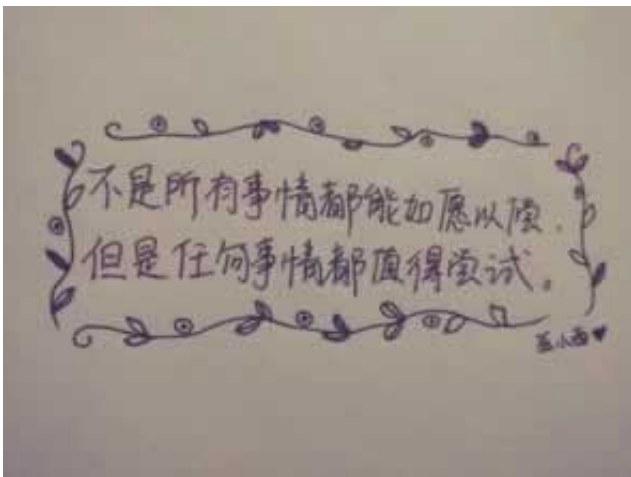 不是所有事情都能如愿以偿.
但是任何事情都值得尝试。